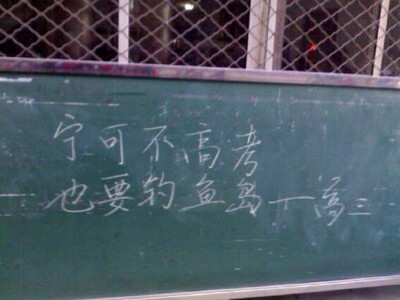 宁可不高考
也要钓鱼岛一高三